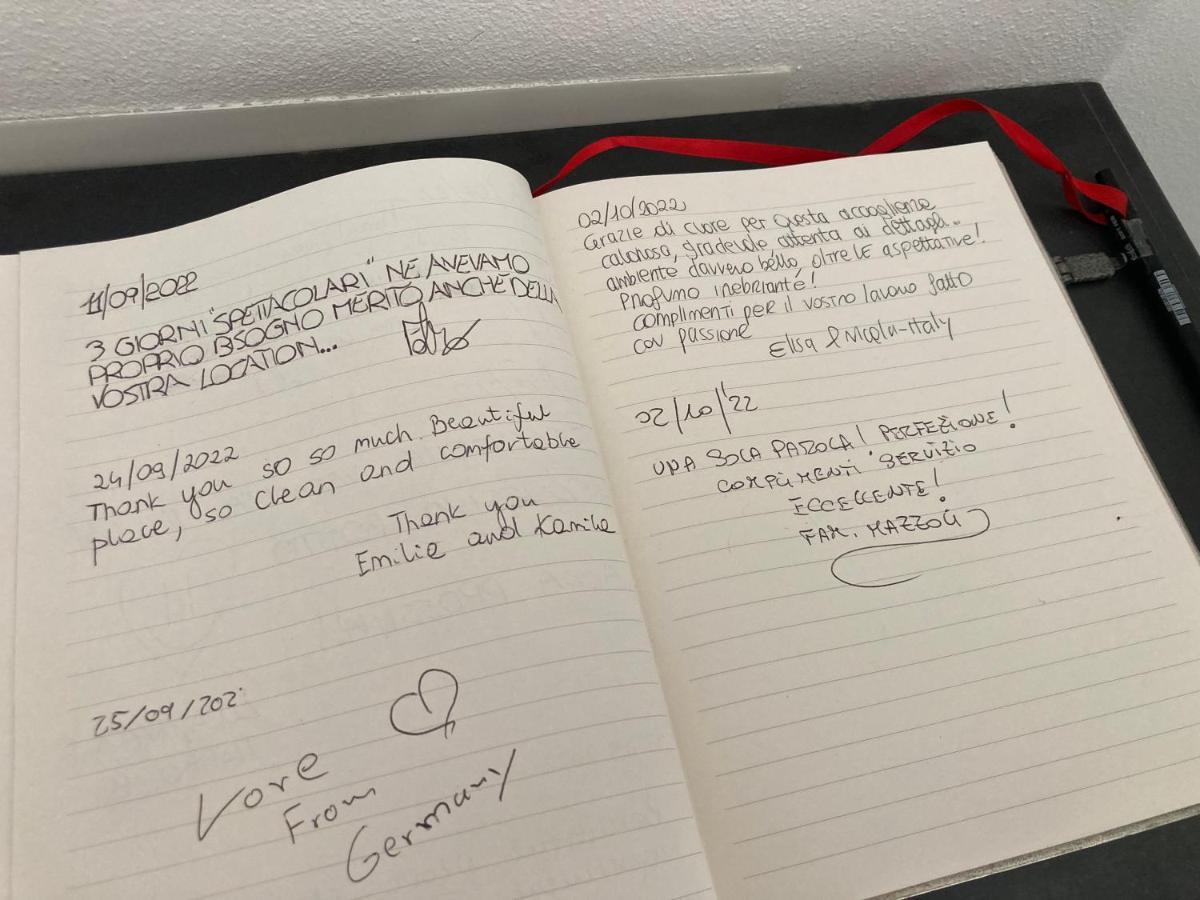 11/09/2022
3 GIORNI "SPETTACOLARI" NE AVEVAMO
PROPRIO BISOGNO MERITO ANCHE DELLA
VOSTRA LOCATION...
24/09/2022
Thank you so so much. Beautiful
place, so clean and comfortable
Thank you
Emilie and Kamile
25/09/202
From
Germany
02/10/2022
Grazie di cuore per questa accoglienza
calorosa, gradevole attenta ai dettagli..
ambiente davvero bello, oltre le aspettative!
Profumo inebriante!
complimenti per il vostro lavoro fatto
con passione
Elisa & Nicola-Italy
02/10/'22
UNA SOLA PAROLA! PERFEZIONE!
COMPLIMENTI SERVIZIO
ECCELLENTE!
FAM. MAZZOLI